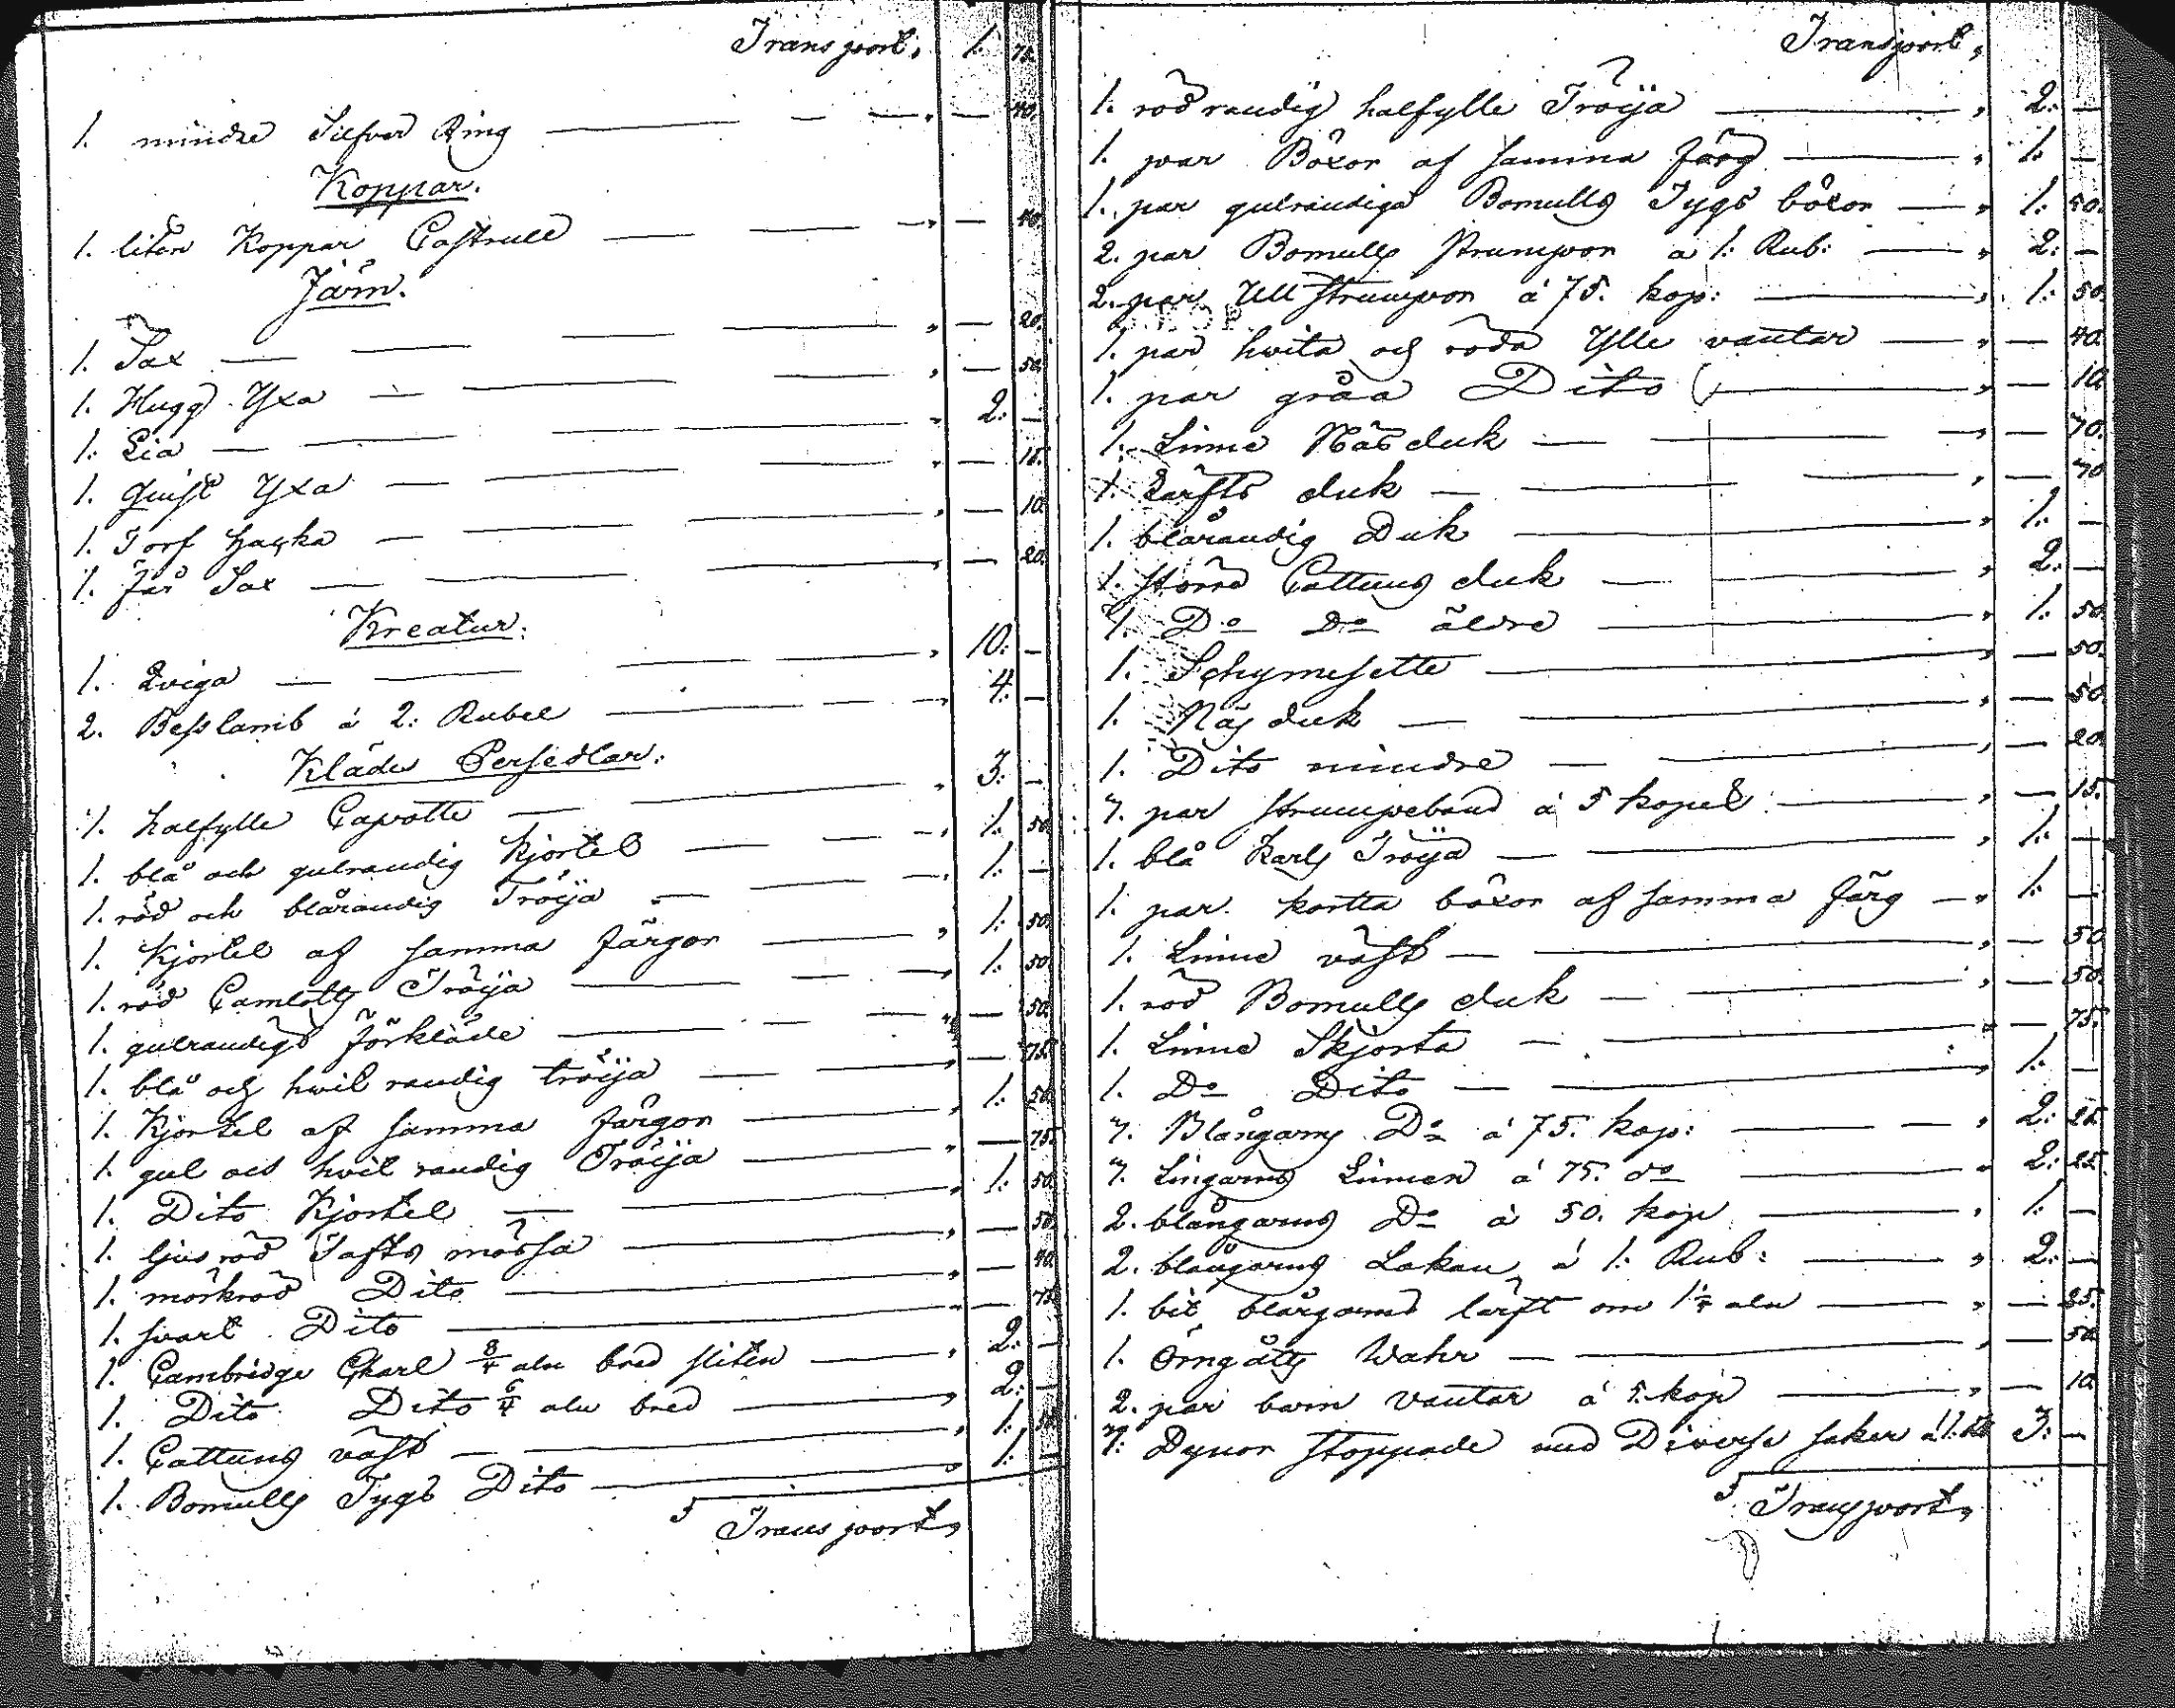 Transport, 1. 75.
1. mindre Silfver Ring — — — „ — 40.
Koppar.
1. liten Koppar Castrull — — — „ — 40.
Järn.
1. Sax — — — — „ — 20.
1. Hugg Yxa — — — „ — 50.
1. Lia — — — — „ 2. —
1. Quist Yxa — — — — „ — 15.
1. Torf hacka — — — — „ — 10.
1. Får Sax — — — — „ — 20.
Kreatur.
1. Qviga — — — — „ 10. —
2. Besslamb á 2: Rubel — — — „ 4. —
Kläde Persedlar.
1. halfylle Capotte — — „ 3. —
1. blå och gulrandig Kjortel — — — „ 1. 50.
1. röd och blårandig Tröija — — — „ 1. —
1. Kjortel af samma färgor — — „ 1. 50.
1. röd Camlotts Tröija — — — „ 1. 50.
1. gulrandigt förkläde — — — „ — 50.
1. blå och hvit randig tröija — — „ — 75.
1. Kjortel af samma färgor — „ 1. 50.
1. gul och hvit randig Tröija — „ — 75.
1. Dito Kjortel — — „ 1. 50.
1. ljusröd Tafts mössa — „ — 50.
1. mörkröd Dito — „ — 40.
1. svart Dito — „ — 75.
1. Cambridge Charl 8/4 aln bred sliten — „ 2. —
1. Dito Dito 6/4 aln bred — „ 2. —
1. Cattuns väst — — „ 1.
1. Bomulls Tygs Dito — „ 1. —
Transport,
Transport,
1. röd randig halfylle Tröija — „ 2. —
1. par Böxor af samma färg — „ 1. —
1. par gulrandiga Bomulls Tygs böxor — „ 1. 50.
2. par Bomulls strumpor a 1: Rub: — „ 2. —
2. par Ull strumpor á 75. kop: — „ 1. 50.
1. par hvita och röda Ylle vantar — „ — 40.
1. par gråa Dito — „ — 10.
1. Linne Näsduk — — „ — 70.
1. Lärfts duk — — — „ — 70
1. blårandig Duk — „ 1. —
1. större Cattuns duk — — „ 2. —
1. Do Do äldre — „ 1. 50.
1. Schymesette — „ — 50.
1. Näsduk — — „ — 50.
1. Dito mindre — — „ — 20.
3. par strumpeband á 5 kopek — „ — 15.
1. blå Karls Tröija — — „ 1. —
1. par kortta böxor af samma färg — „ 1. —
1. Linne väst — — „ — 50.
1. röd Bomulls duk — — „ — 50.
1. Linne Skjorta — — „ — 75.
1. Do Dito — — „ 1. —
3. Blångarns Do á 75. kop: — — „ 2: 25.
3. Lingarns Linnen á 75. do — „ 2: 25.
2. blångarns Do á 50. kop — „ 1. —
2. blångarns Lakan á 1: Rub: — „ 2: —
1. bit blårgarns lärft om 1 1/4 aln — „ — 25.
1. Örngåtts Wahr — — „ — 50.
2. par barn vantar á 5. kop — „ — 10.
3. Dynor stoppade med Diverse saker á 1. 3: —
Transport,